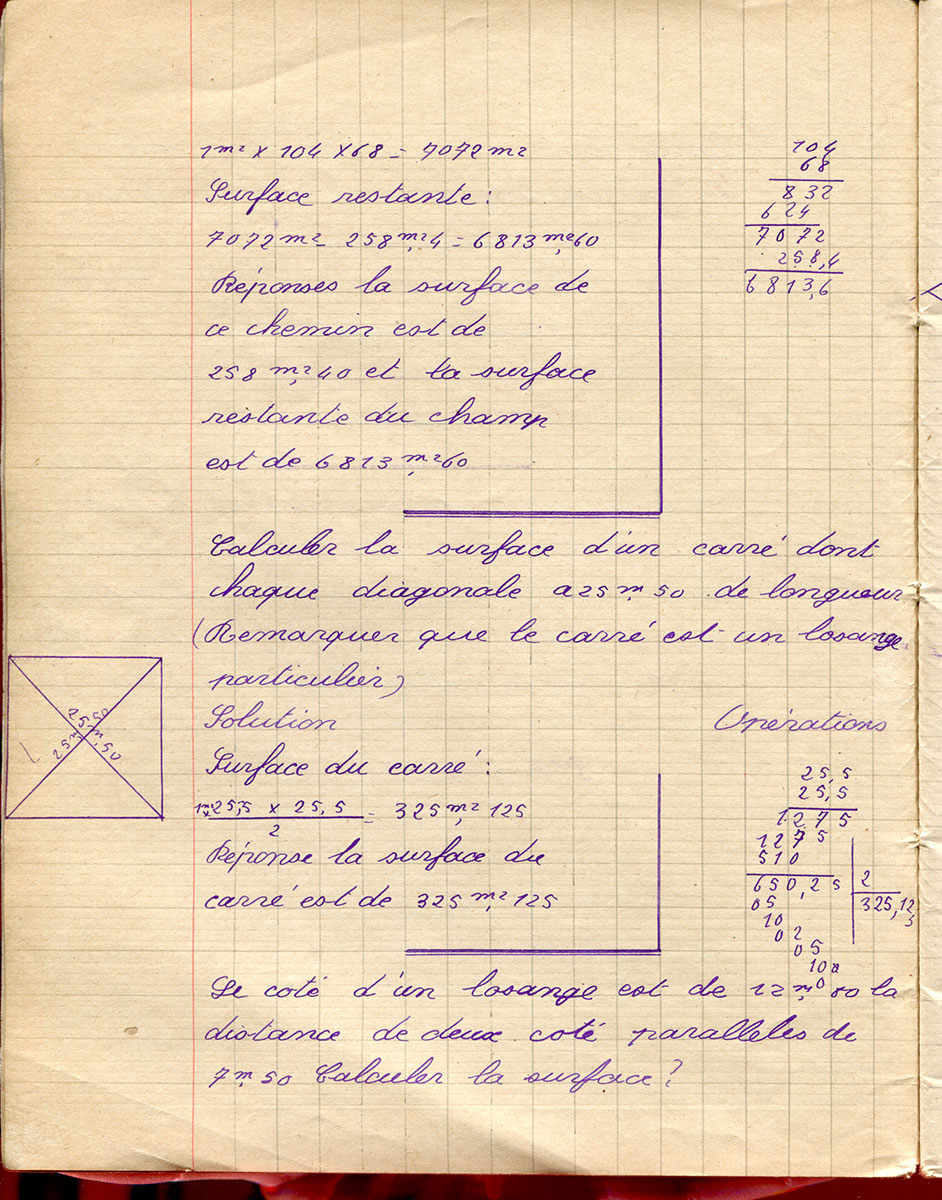 1m² × 104 × 68 = 7072 m²
Surface restante :
7072 m² - 258 m²,4 = 6813 m²,60
Réponses la surface de
ce chemin est de
258 m²,40 et la surface
restante du champ
est de 6813 m²,60
104
68
832
624
7072
258,4
6813,6
Calculer la surface d'un carré dont
chaque diagonale a 25 m, 50 de longueur
(Remarquer que le carré est un losange
particulier)
25 m, 50
25 m, 50
Solution
Opérations
Surface du carré :
1m² × 25,5 × 25,5 = 325 m², 125
2
Réponse la surface du
carré est de 325 m², 125
25,5
25,5
1275
1275
510
650,25 2
05 325,125
10
02
05
10
0
Le coté d'un losange est de 12 m, 80 la
distance de deux coté paralleles de
7 m, 50 Calculer la surface ?